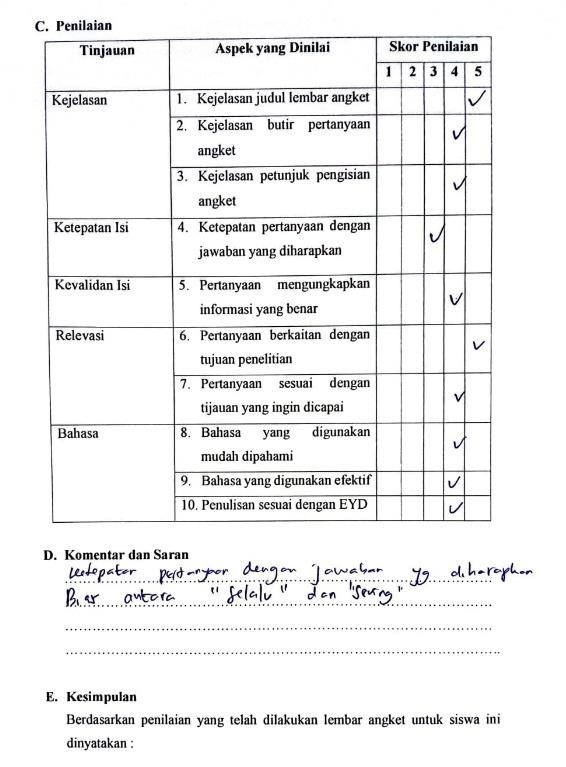 C. Penilaian
Tinjauan Aspek yang Dinilai Skor Penilaian
1 2 3 4 5
Kejelasan 1. Kejelasan judul lembar angket ✓
2. Kejelasan butir pertanyaan ✓
angket
3. Kejelasan petunjuk pengisian ✓
angket
Ketepatan Isi 4. Ketepatan pertanyaan dengan ✓
jawaban yang diharapkan
Kevalidan Isi 5. Pertanyaan mengungkapkan ✓
informasi yang benar
Relevasi 6. Pertanyaan berkaitan dengan ✓
tujuan penelitian
7. Pertanyaan sesuai dengan ✓
tijauan yang ingin dicapai
Bahasa 8. Bahasa yang digunakan ✓
mudah dipahami
9. Bahasa yang digunakan efektif ✓
10. Penulisan sesuai dengan EYD ✓
D. Komentar dan Saran
dengan jawaban yg diharapkan
antara "Selalu" dan "Sering"
E. Kesimpulan
Berdasarkan penilaian yang telah dilakukan lembar angket untuk siswa ini
dinyatakan :